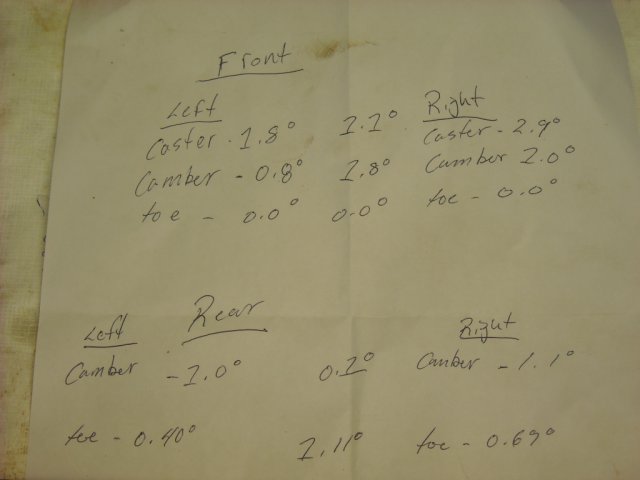 Front
Left Right
Caster - 1.8° 1.1° Caster - 2.9°
Camber - 0.8° 1.8° Camber 1.0°
toe - 0.0° 0.0° toe - 0.0°
Rear
Left Right
Camber - 1.0° 0.1° Camber - 1.1°
toe - 0.40° 1.11° toe - 0.69°